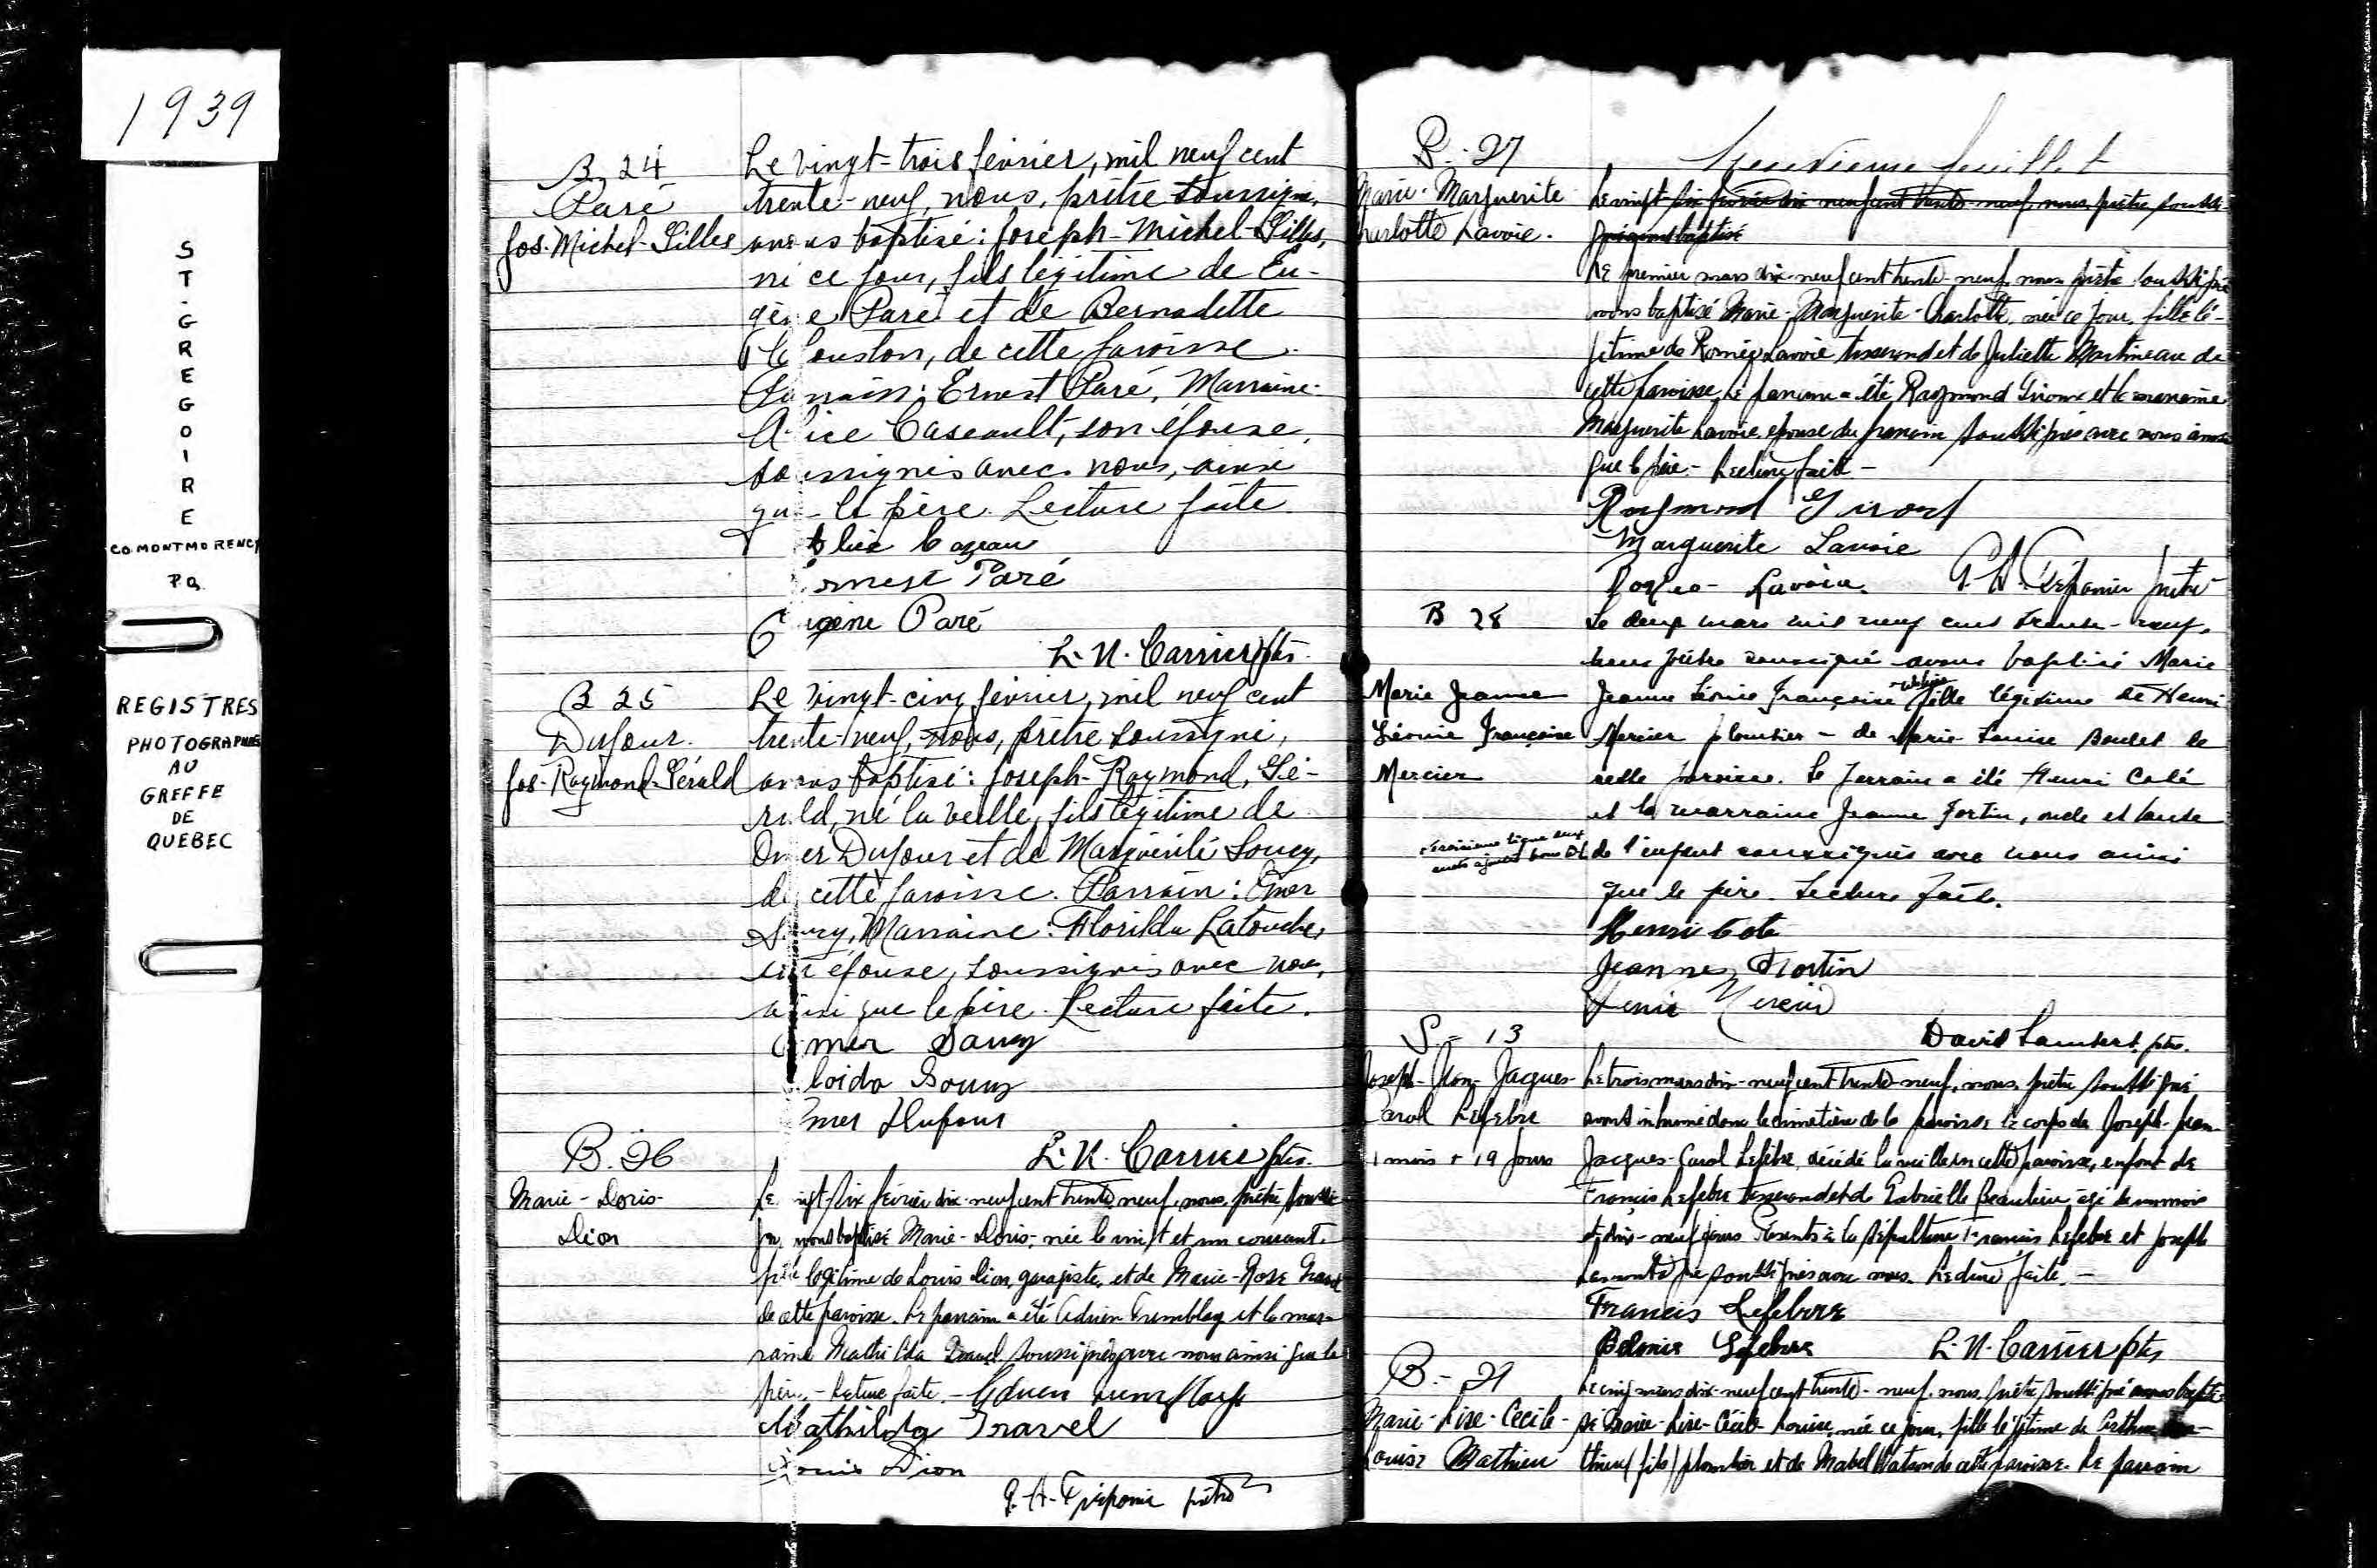 1939
ST-GREGOIRE
CO. MONTMORENCY
P.Q.
REGISTRES
PHOTOGRAPHIES
AU
GREFFE
DE
QUEBEC
B. 24
Paré
Jos. Michel-Gilles
Le vingt-trois février, mil neuf cent
trente-neuf, nous, prêtre soussigné,
avons baptisé: Joseph-Michel-Gilles,
né ce jour, fils légitime de Eu-
gène Paré et de Bernadette
de cette paroisse.
Parrain: Ernest Paré, Marraine:
Alice Caseault, son épouse,
soussignés avec nous, ainsi
que le père. Lecture faite.
Alice Cazeau
Ernest Paré
Eugène Paré
L.N. Carrier ptre.
B 25
Dufour.
Jos-Raymond-Gérald
Le vingt-cinq février, mil neuf cent
trente-neuf, nous, prêtre soussigné,
avons baptisé: Joseph-Raymond, Gé-
rald, né la veille, fils légitime de
Omer Dufour et de Marguérite Soucy,
de cette paroisse. Parrain: Omer
Soucy, Marraine: Florilda Latouche,
son épouse, soussignés avec nous,
ainsi que le père. Lecture faite.
Omer Soucy
Soucy
Omer Dufour
L.N. Carrier ptre.
B. 26
Marie-Doris-
Dion
Le vingt-six février dix-neuf cent trente-neuf, nous, prêtre soussi-
gné, avons baptisé Marie-Doris, née le vingt et un courant,
fille légitime de Louis Dion, garagiste, et de Marie-Rose Gravel
de cette paroisse. Le parrain a été Adrien Tremblay et la mar-
raine Mathilda Gravel soussignés avec nous ainsi que le
père. - Lecture faite. - Adrien Tremblay
Mathilda Gravel
Louis Dion
P.-A. Trépanier prêtre
B.-27
Neuvième feuillet
Marie-Marguerite
Charlotte Lavoie.
Le vingt-six février dix-neuf cent trente-neuf, nous, prêtre soussi-
gné avons baptisé
Le premier mars dix-neuf cent trente-neuf, nous prêtre soussigné
avons baptisé Marie-Marguerite-Charlotte, née ce jour, fille lé-
gitime de Roméo Lavoie tisserand et de Juliette Martineau de
cette paroisse. Le parrain a été Raymond Giroux et la marraine
Marguerite Lavoie, épouse du parrain soussignés avec nous ainsi
que le père. - Lecture faite -
Raymond Giroux
Marguerite Lavoie
Roméo Lavoie. P.A. Trépanier prêtre
B 28
Le deux mars mil neuf cent trente-neuf,
nous prêtre soussigné avons baptisé Marie
Marie Jeanne
Léonie Françoise
Mercier
Jeanne Léonie Françoise fille légitime de Henri
Mercier plombier - de Marie Louise Boulet de
cette paroisse. Le parrain a été Henri Coté
et la marraine Jeanne Fortin, oncle et tante
troisième ligne deux
mots ajoutés bons DL
de l'enfant soussignés avec nous ainsi
que le père. Lecture faite.
Henri Coté
Jeanne Fortin
Henri Mercier
David Lambert, ptre.
S.-13
Joseph-Jean-Jacques-
Carol Lefebre
1 mois + 19 jours
Le trois mars dix-neuf cent trente-neuf, nous, prêtre soussigné
avons inhumé dans le cimetière de la paroisse le corps de Joseph-Jean-
Jacques-Carol Lefebre, décédé la veille en cette paroisse, enfant de
Francis Lefebre tisserand et de Gabrielle Beaulieu âgé de un mois
et dix-neuf jours. Présents à la sépulture Francis Lefebre et Joseph
soussignés avec nous. Lecture faite. -
Francis Lefebvre
Lefebvre L.N. Carrier ptre
B.-29
Marie-Lise-Cécile-
Louise Mathieu
Le cinq mars dix-neuf cent trente-neuf, nous, prêtre, soussigné avons bapti-
sé Marie-Lise-Cécile-Louise, née ce jour, fille légitime de Arthur Ma-
thieu (fils) plombier et de Mabel Watson de cette paroisse. Le parrain